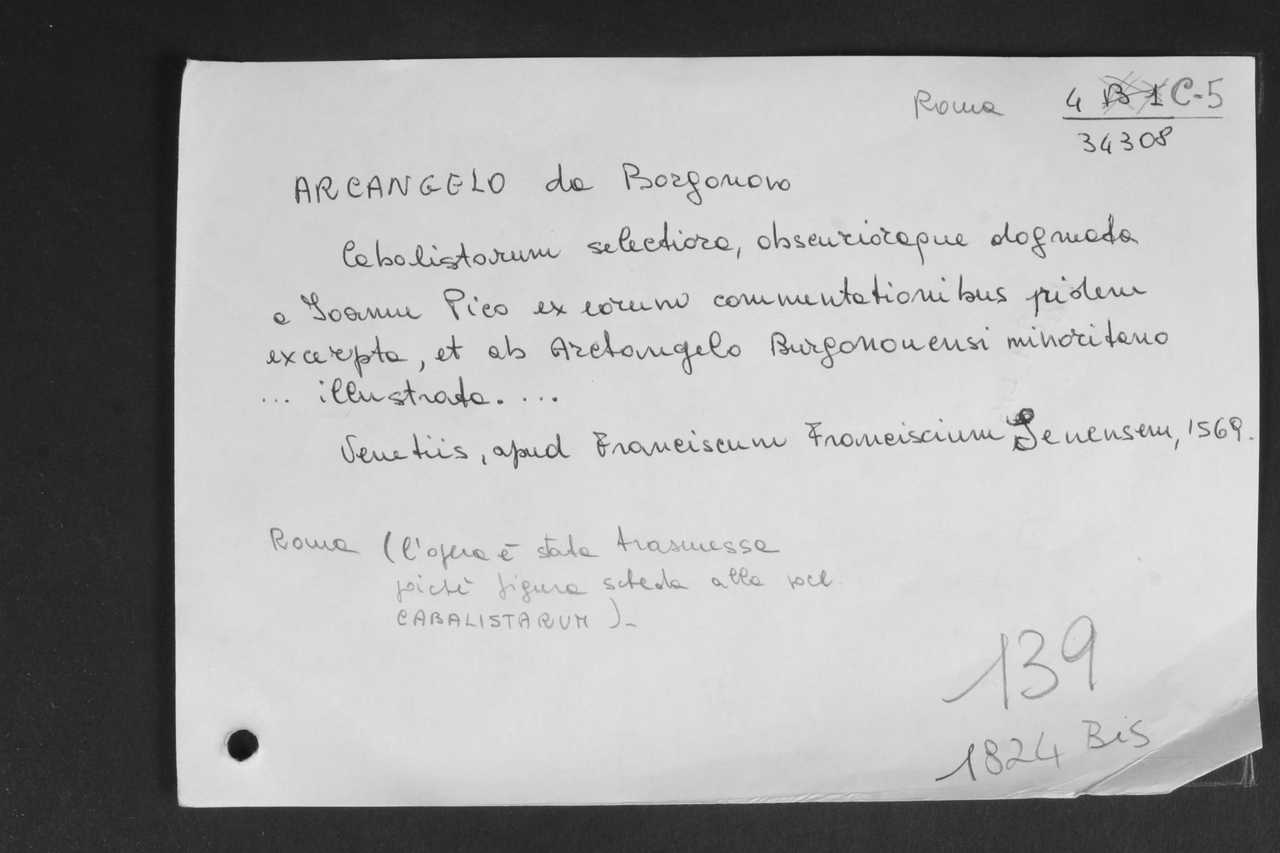 Roma 4 B 1 C-5
34308
ARCANGELO da Borgonovo
Cabalistarum selectiora, obscurioraque dogmata
a Ioanne Pico ex eorum commentationibus pridem
excerpta, et ab Arctangelo Burgonouensi minoritano
... illustrata. ...
Venetiis, apud Franciscum Franciscium Senensem, 1569.
Roma (l'opera è stata trasmessa
poichè figura scheda alla voce
CABALISTARUM)-
139
1824 Bis